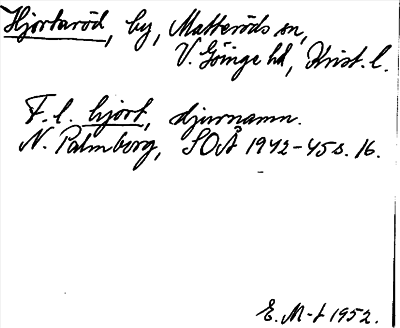 Hjortaröd, by, Matteröds sn,
V. Göinge hd, Krist. l.
F. l. hjort, djurnamn.
N. Palmborg, SOÅ 1942-45 s. 16.
E. M-t 1952.